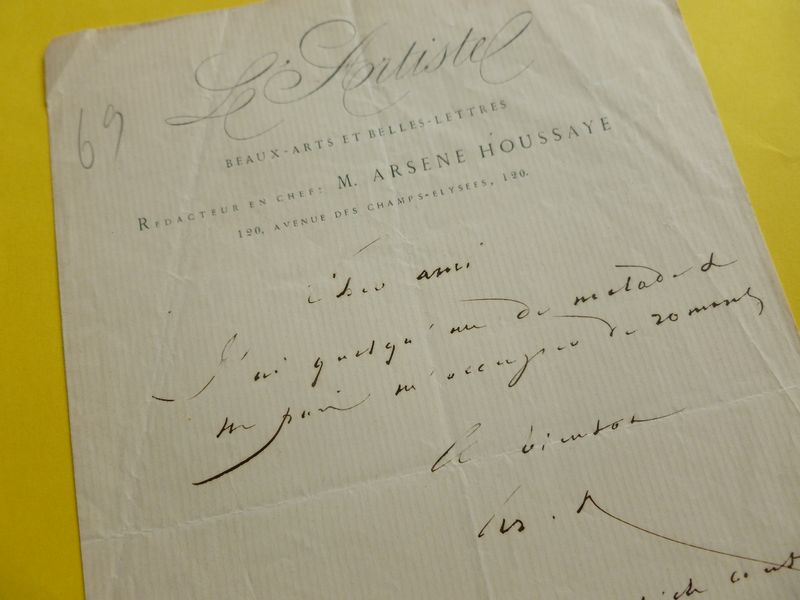 69
L'Artiste
BEAUX-ARTS ET BELLES-LETTRES
REDACTEUR EN CHEF: M. ARSENE HOUSSAYE
190, AVENUE DES CHAMPS-ELYSEES, 190.
Cher ami
J'ai quelqu'un de malade &
ne puis m'occuper de romans
A bientot
Ars. H